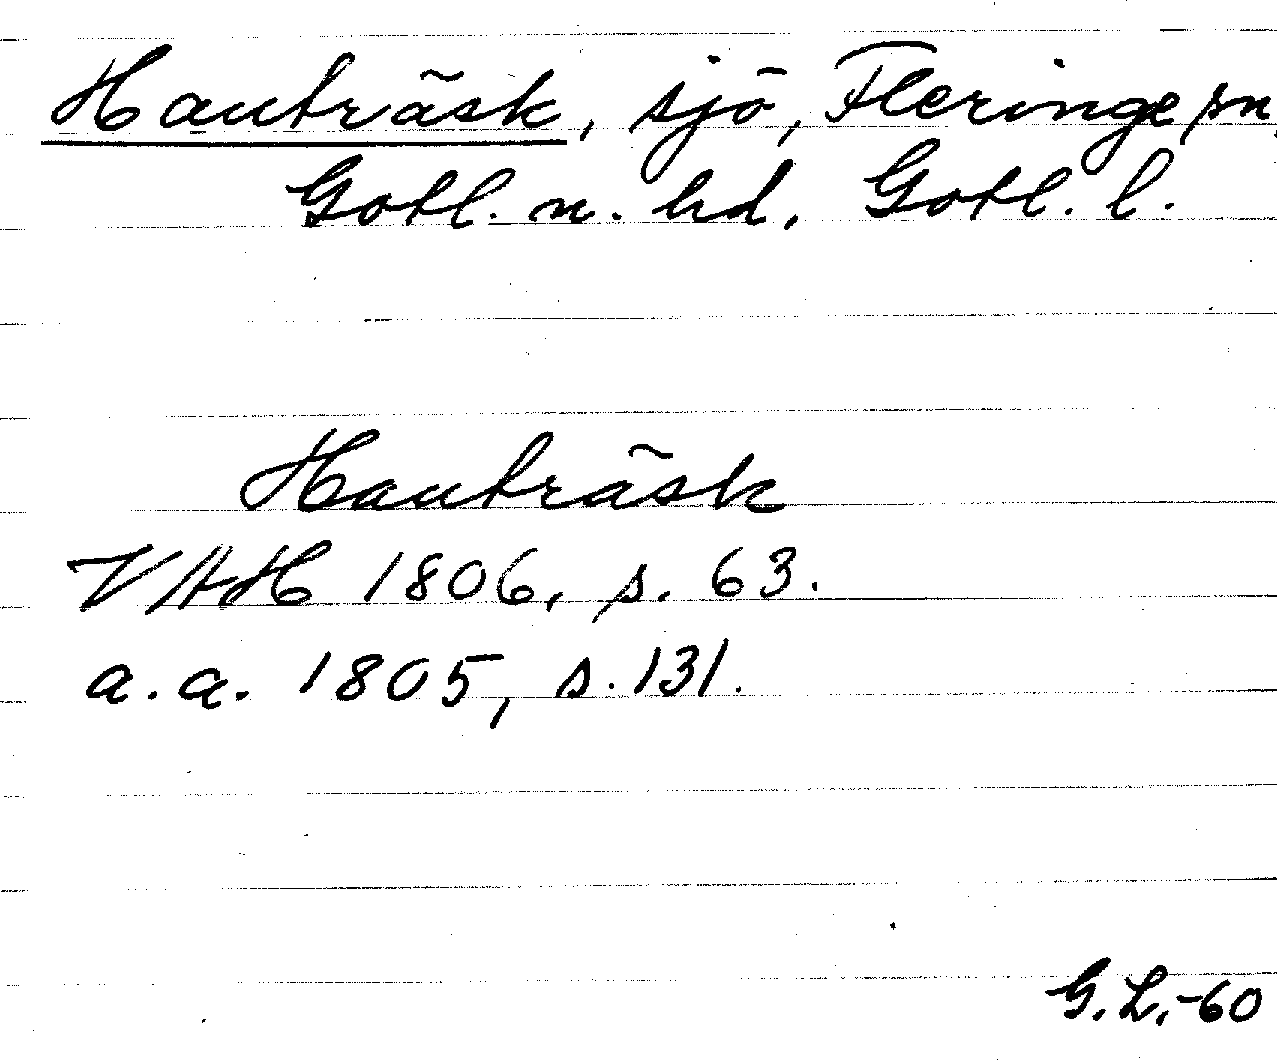 Hauträsk, sjö, Fleringe sn,
Gotl. n. hd, Gotl. l.
Hauträsk
VAH 1806, s. 63.
a.a. 1805, s. 131.
G.L.-60